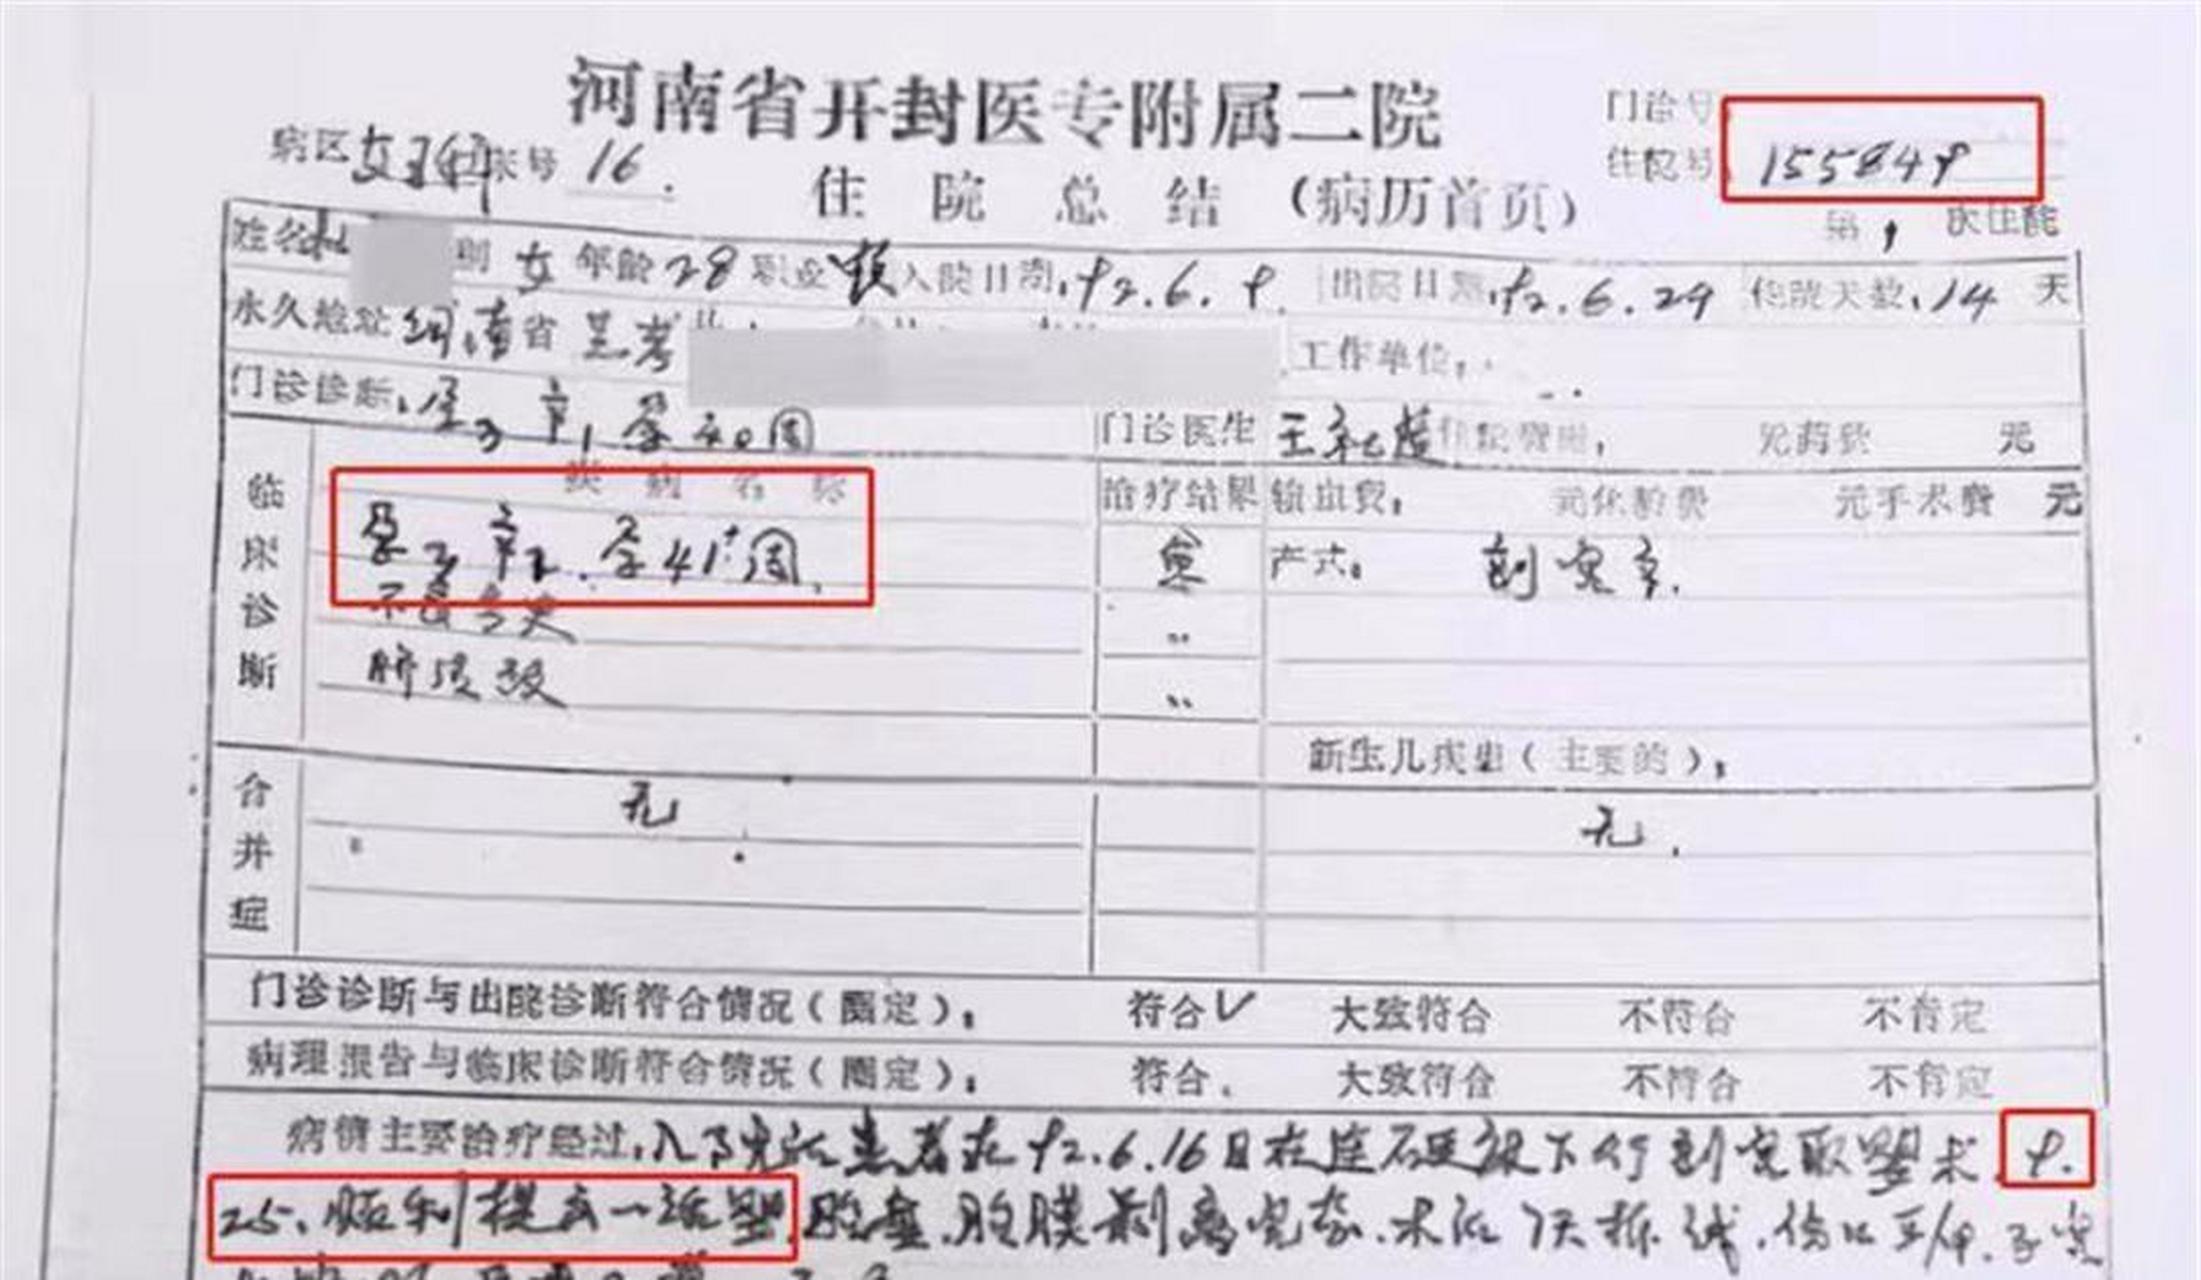 河南省开封医专附属二院
门诊号
病区 妇科 床号 16.
住院号 155849
住院总结（病历首页）
第1次住院
姓名杜 别 女 年龄28 职业 入院日期:92.6.9. 出院日期:92.6.29 住院天数:14 天
永久地址 河南省 兰考 工作单位:
门诊诊断:孕3产1孕40周 门诊医生 住院费用: 元药费 元
临床诊断 疾病名称 治疗结果 输血费: 元化验费 元手术费 元
孕3产2.孕41+周. 愈 产式: 剖宫产.
"
"
新生儿疾患（主要的）:
合并症 无 无.
门诊诊断与出院诊断符合情况（圈定）: 符合✓ 大致符合 不符合 不肯定
病理报告与临床诊断符合情况（圈定）: 符合. 大致符合 不符合 不肯定
病情主要治疗经过:入院后患者在92.6.16日在连硬麻下行剖宫取婴术.9.
25.顺利提出一活婴.胎盘.胎膜剥离完整.术后7天拆线.伤口平/甲.子宫